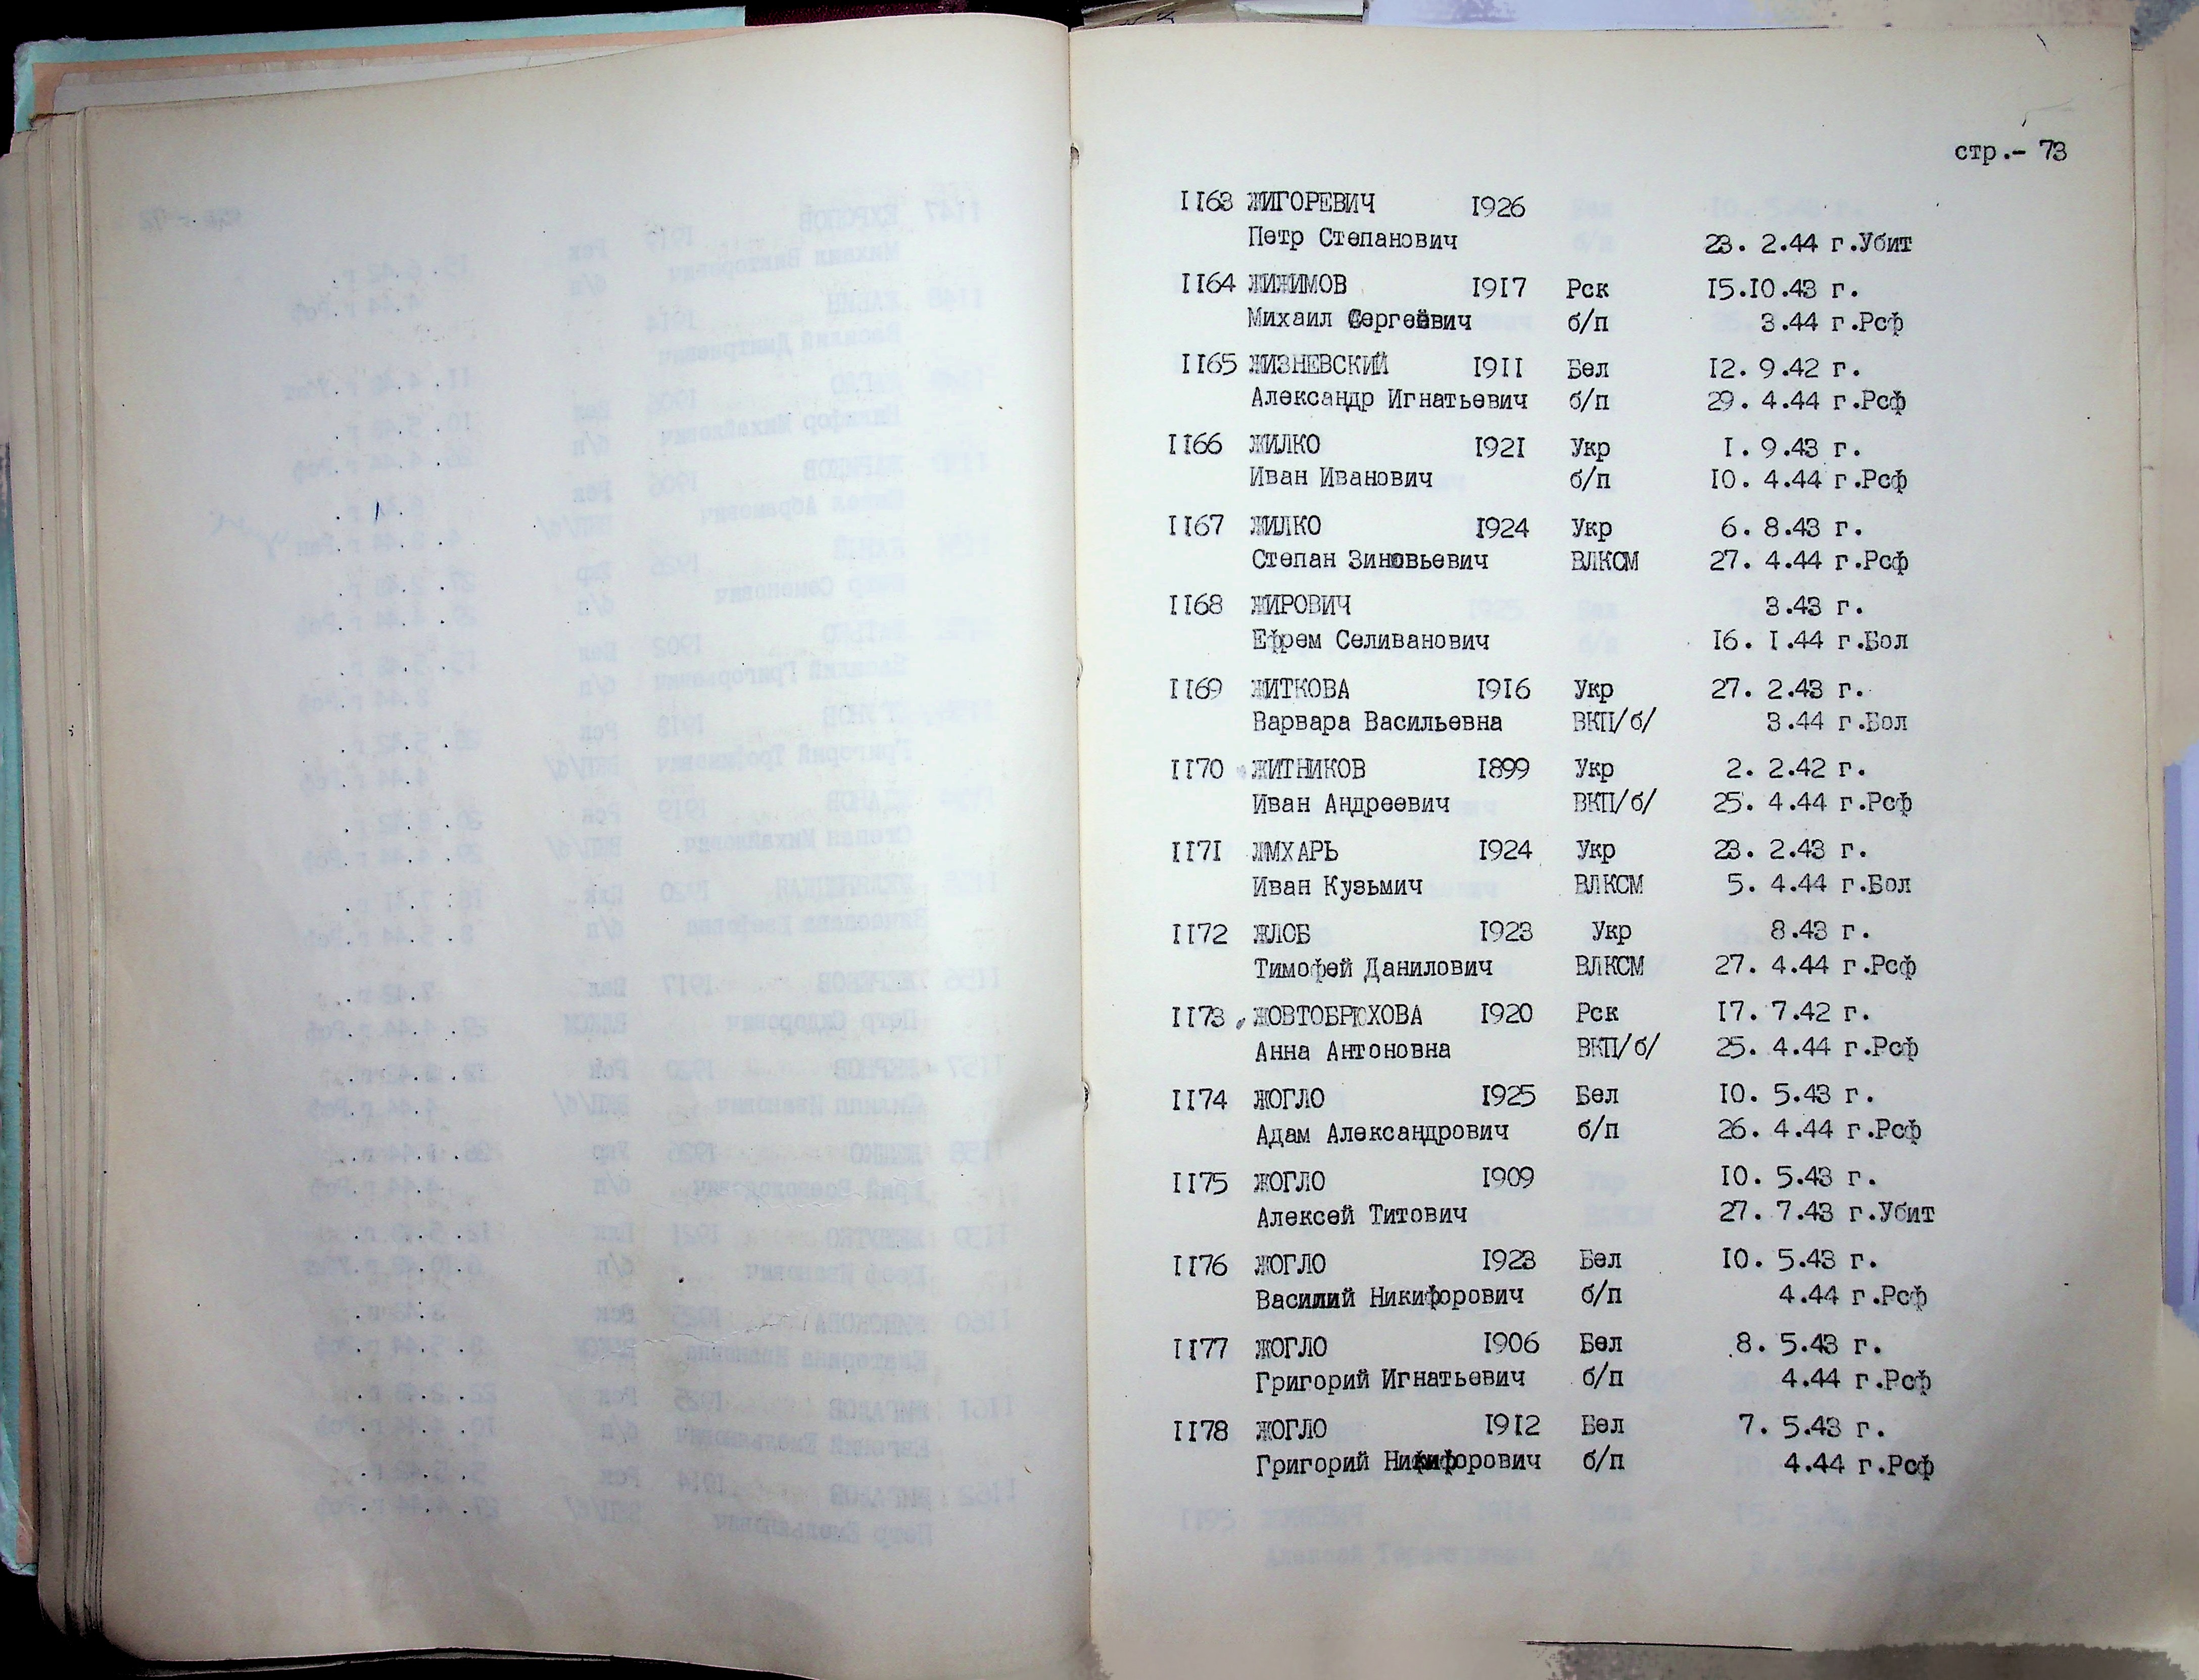 стр.- 73
1163 ЖИГОРЕВИЧ 1926
Петр Степанович 23. 2.44 г.Убит
1164 ЖИЖИМОВ 1917 Рск 15.10.43 г.
Михаил Сергеевич б/п 3.44 г.Рсф
1165 ЖИЗНЕВСКИЙ 1911 Бел 12. 9.42 г.
Александр Игнатьевич б/п 29. 4.44 г.Рсф
1166 ЖИЛКО 1921 Укр 1. 9.43 г.
Иван Иванович б/п 10. 4.44 г.Рсф
1167 ЖИЛКО 1924 Укр 6. 8.43 г.
Степан Зиновьевич ВЛКСМ 27. 4.44 г.Рсф
1168 ЖИРОВИЧ 3.43 г.
Ефрем Селиванович 16. 1.44 г.Бол
1169 ЖИТКОВА 1916 Укр 27. 2.43 г.
Варвара Васильевна ВКП/б/ 3.44 г.Бол
1170 ЖИТНИКОВ 1899 Укр 2. 2.42 г.
Иван Андреевич ВКП/б/ 25. 4.44 г.Рсф
1171 ЖМХАРЬ 1924 Укр 23. 2.43 г.
Иван Кузьмич ВЛКСМ 5. 4.44 г.Бол
1172 ЖЛОБ 1923 Укр 8.43 г.
Тимофей Данилович ВЛКСМ 27. 4.44 г.Рсф
1173 ЖОВТОБРЮХОВА 1920 Рск 17. 7.42 г.
Анна Антоновна ВКП/б/ 25. 4.44 г.Рсф
1174 ЖОГЛО 1925 Бел 10. 5.43 г.
Адам Александрович б/п 26. 4.44 г.Рсф
1175 ЖОГЛО 1909 10. 5.43 г.
Алексей Титович 27. 7.43 г.Убит
1176 ЖОГЛО 1923 Бел 10. 5.43 г.
Василий Никифорович б/п 4.44 г.Рсф
1177 ЖОГЛО 1906 Бел 8. 5.43 г.
Григорий Игнатьевич б/п 4.44 г.Рсф
1178 ЖОГЛО 1912 Бел 7. 5.43 г.
Григорий Никифорович б/п 4.44 г.Рсф